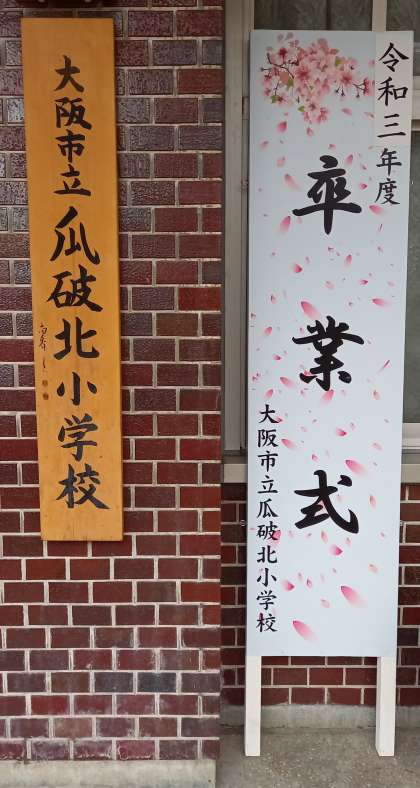 大阪市立瓜破北小学校
令和三年度
卒業式
大阪市立瓜破北小学校